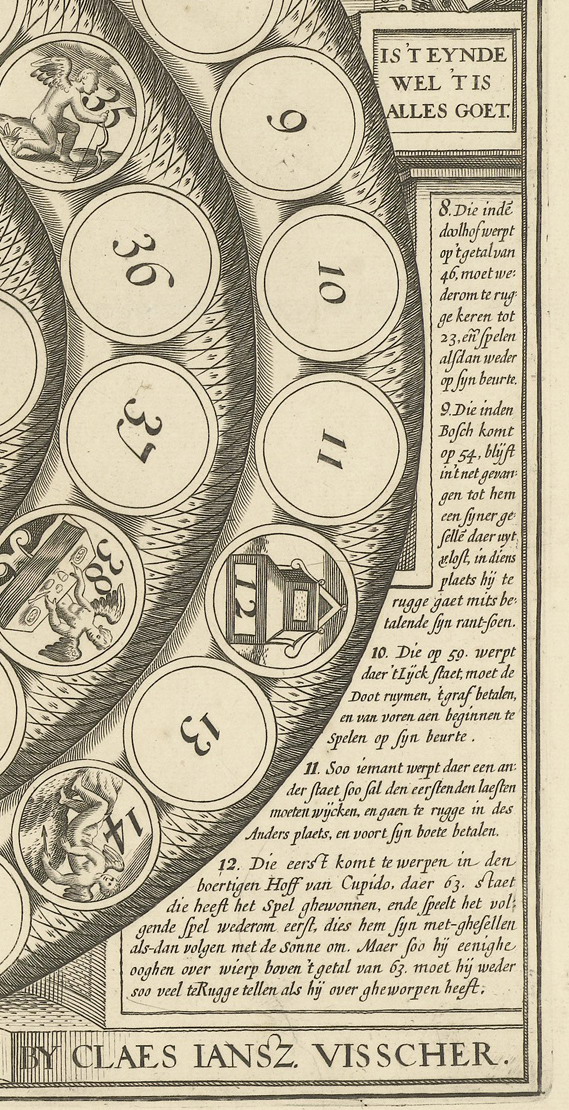 IS 'T EYNDE
WEL 'T IS
ALLES GOET.
35
9
36
10
37
11
38
12
13
14
8. Die indē
doolhof werpt
op 't getal van
46, moet we:
derom te rug
ge keren tot
23, en̄ spelen
alsdan weder
op syn beurte.
9. Die inden
Bosch komt
op 54, blijft
in't net gevan:
gen tot hem
een syner ge
sellē daer uyt
verlost, in diens
plaets hij te
rugge gaet mits be:
talende syn rant-soen.
10. Die op 59. werpt
daer 't Lijck staet, moet de
Doot ruymen, 't graf betalen,
en van voren aen beginnen te
spelen op syn beurte.
11. Soo iemant werpt daer een an:
der staet soo sal den eersten den laesten
moeten wijcken, en gaen te rugge in des
Anders plaets, en voort syn boete betalen.
12. Die eerst komt te werpen in den
boertigen Hoff van Cupido, daer 63. staet
die heeft het Spel ghewonnen, ende speelt het vol:
gende spel wederom eerst, dies hem syn met-ghesellen
als-dan volgen met de Sonne om. Maer soo hij eenighe
ooghen over wierp boven 't getal van 63. moet hij weder
soo veel te Rugge tellen als hij over gheworpen heeft.
BY CLAES IANSZ. VISSCHER.